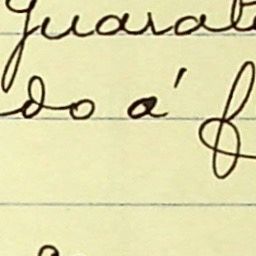 Guarat
do á f